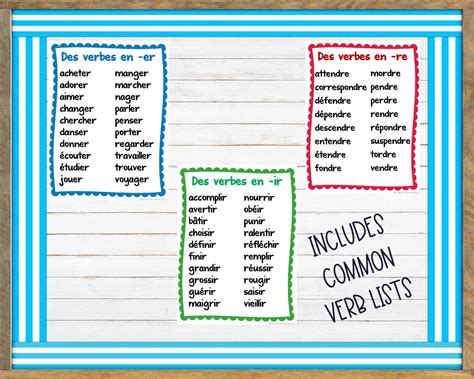 Des verbes en -er
acheter manger
adorer marcher
aimer nager
changer parler
chercher penser
danser porter
donner regarder
écouter travailler
étudier trouver
jouer voyager
Des verbes en -re
attendre mordre
correspondre pendre
défendre perdre
dépendre rendre
descendre répondre
entendre suspendre
étendre tordre
fondre vendre
Des verbes en -ir
accomplir nourrir
avertir obéir
bâtir punir
choisir ralentir
définir réfléchir
finir remplir
grandir réussir
grossir rougir
guérir saisir
maigrir vieillir
INCLUDES
COMMON
VERB LISTS